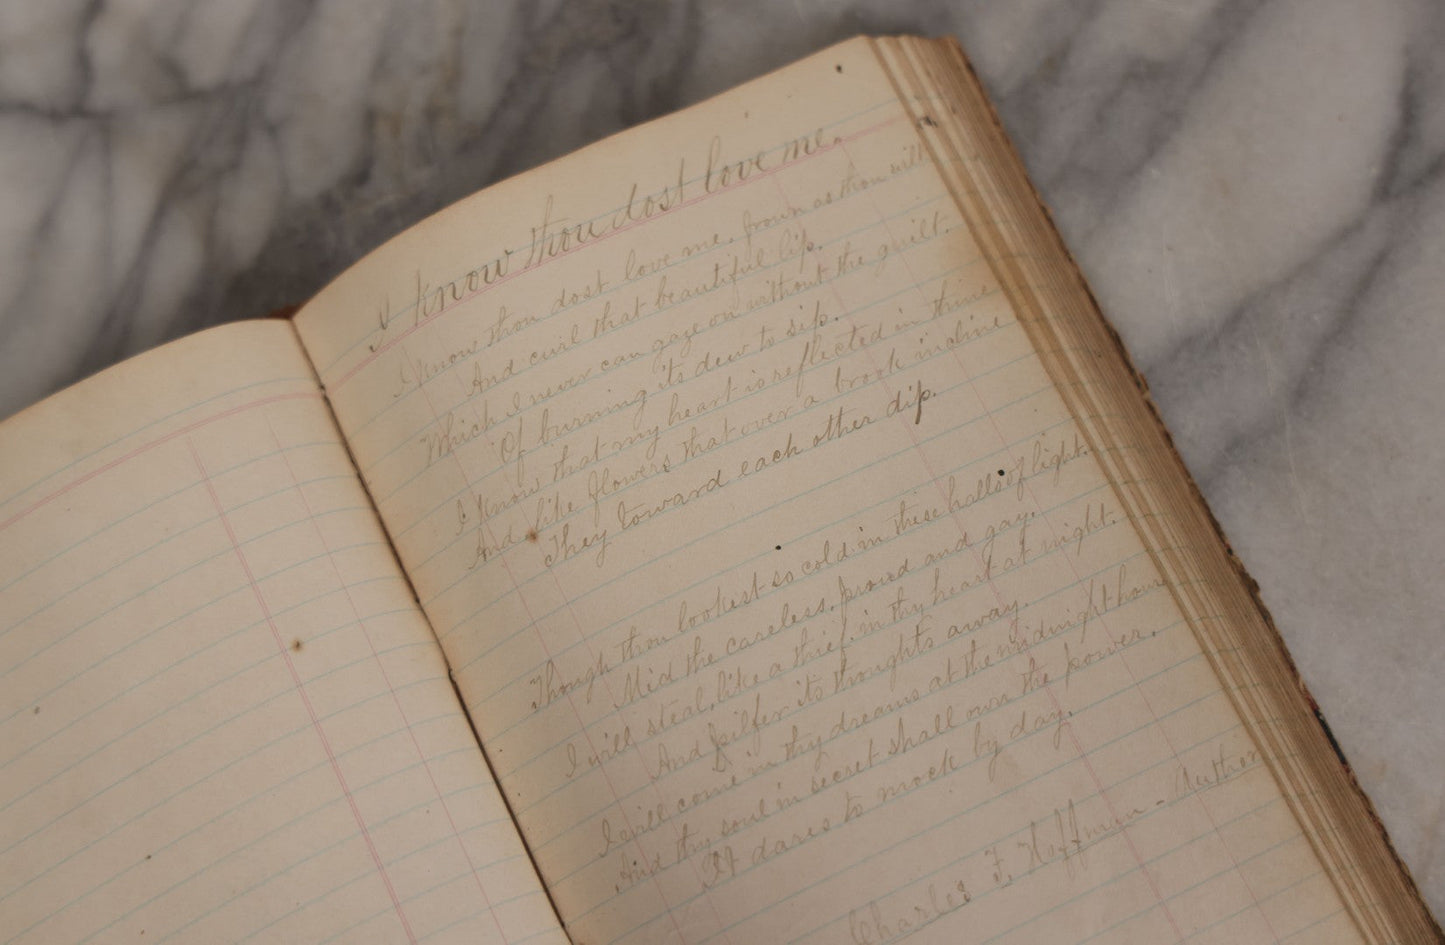 I know thou dost love me.
I know thou dost love me. frown as thou wilt
And curl that beautiful lip.
Which I never can gaze on without the guilt.
Of burning its dew to sip.
I know that my heart is reflected in thine
And like flowers that over a brook incline
They toward each other dip.
Though thou lookest so cold in these halls of light.
Mid the careless, proud and gay.
I will steal, like a thief in thy heart at night.
And pilfer its thoughts away.
I will come in thy dreams at the midnight hour
And thy soul in secret shall own the power.
It dares to mock by day.
Charles F. Hoffman - Author